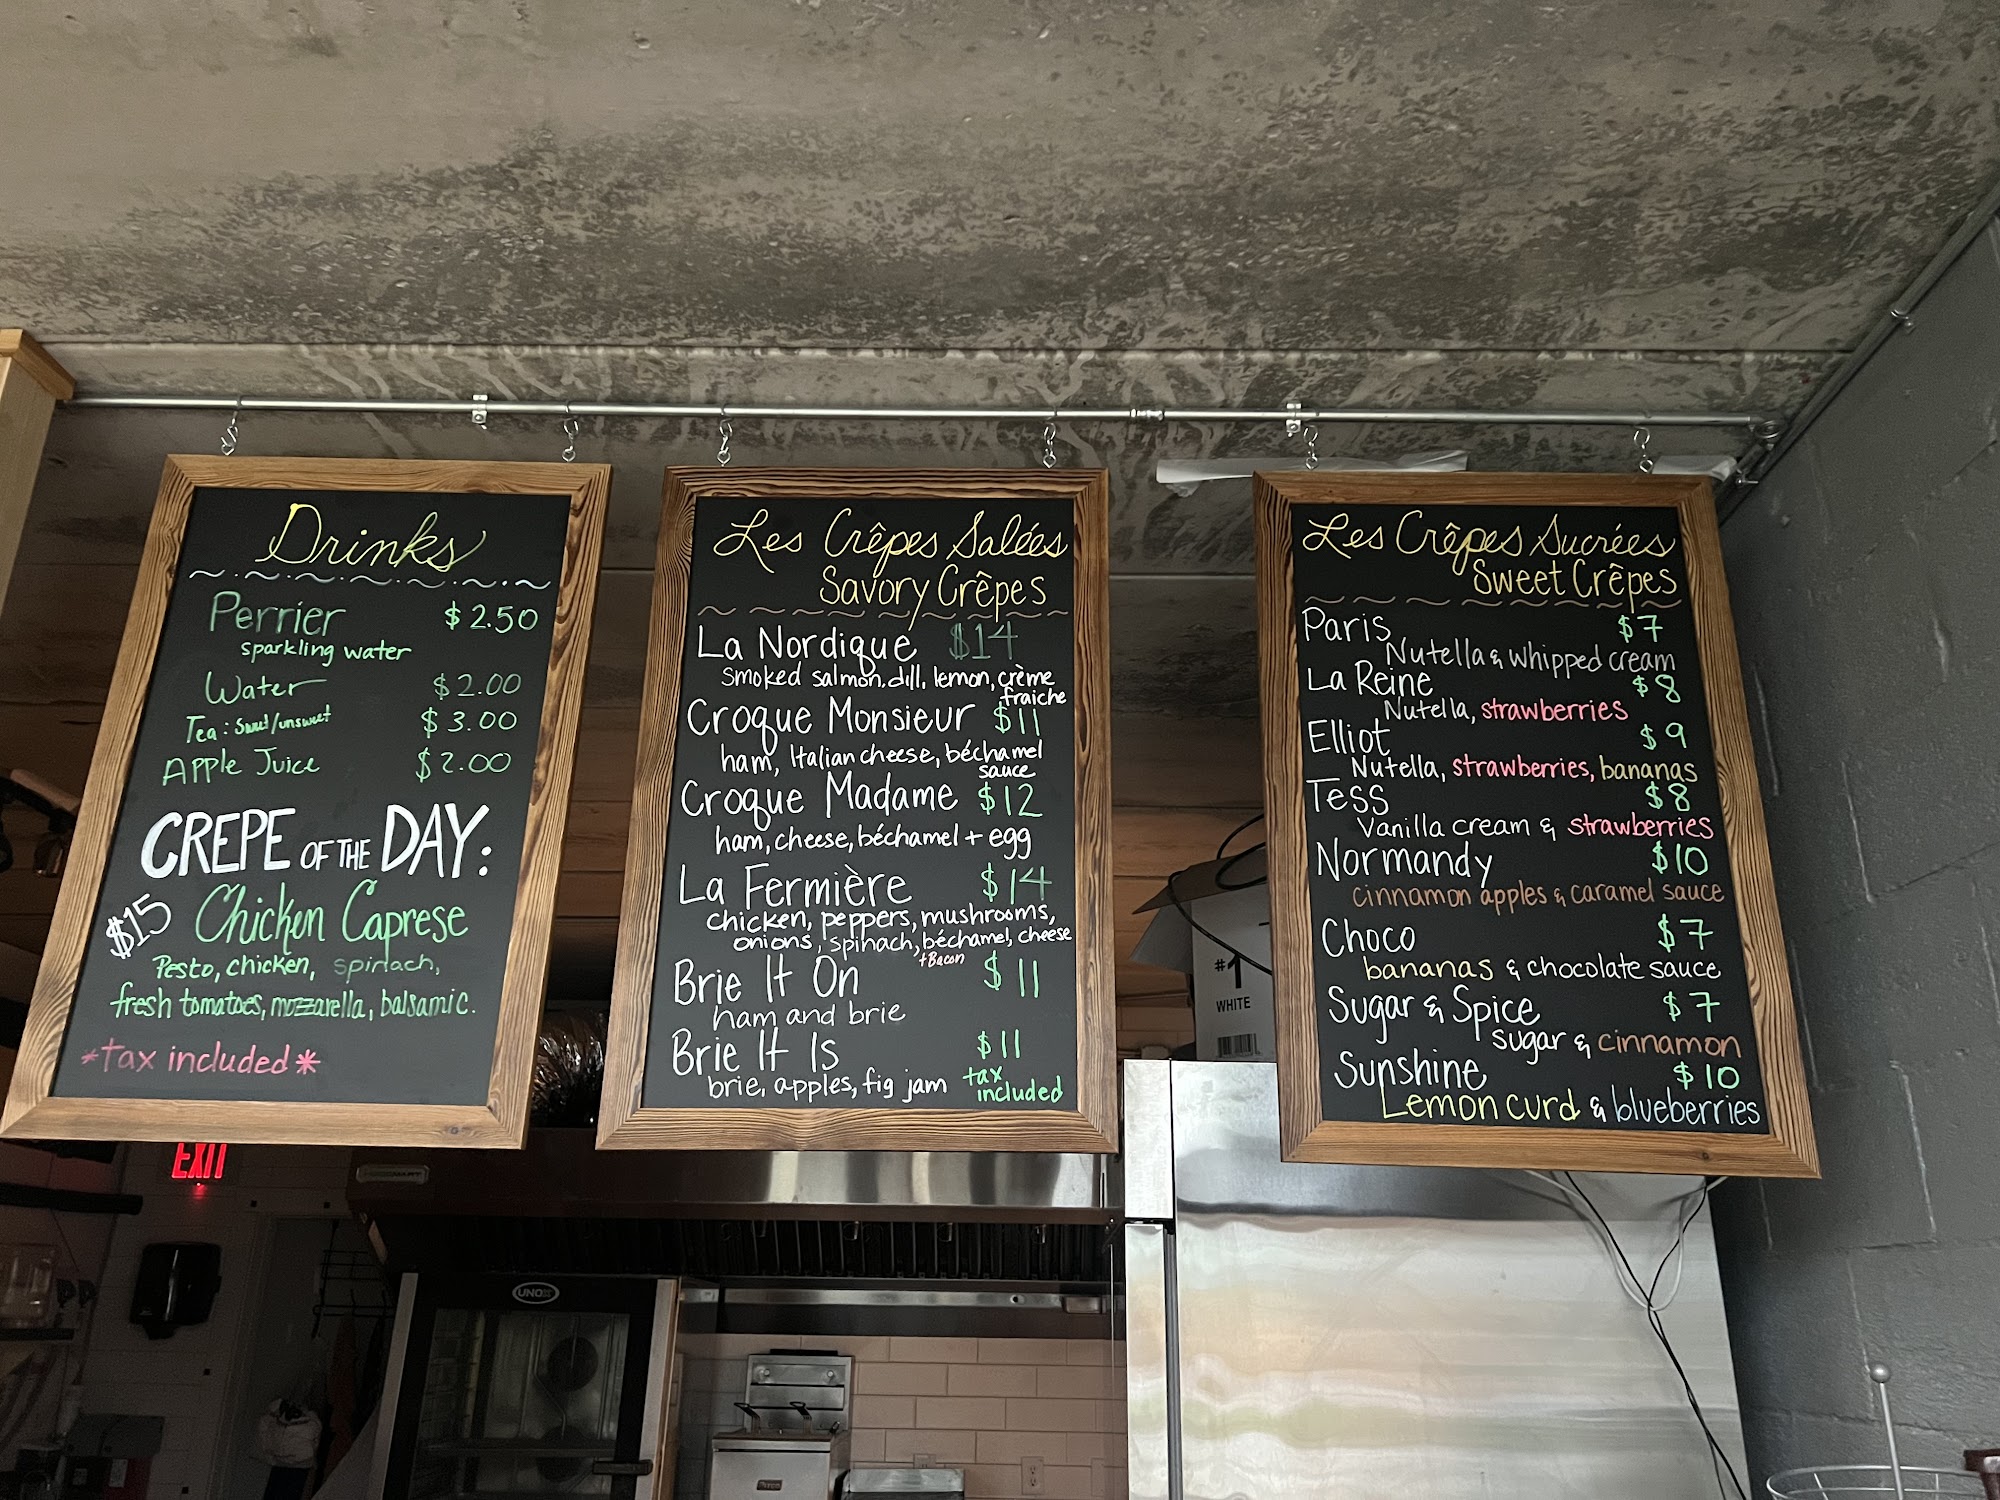 Drinks
Perrier $2.50
sparkling water
Water $2.00
Tea: Sweet/unsweet $3.00
Apple Juice $2.00
CREPE OF THE DAY:
$15 Chicken Caprese
Pesto, chicken, spinach,
fresh tomatoes, mozzarella, balsamic.
*tax included*
Les Crêpes Salées
Savory Crêpes
La Nordique $14
smoked salmon, dill, lemon, crème
fraiche
Croque Monsieur $11
ham, Italian cheese, béchamel
sauce
Croque Madame $12
ham, cheese, béchamel + egg
La Fermière $14
chicken, peppers, mushrooms,
onions, spinach, béchamel, cheese
+ Bacon
Brie It On $11
ham and brie
Brie It Is $11
brie, apples, fig jam
tax
included
Les Crêpes Sucrées
Sweet Crêpes
Paris $7
Nutella & whipped cream
La Reine $8
Nutella, strawberries
Elliot $9
Nutella, strawberries, bananas
Tess $8
Vanilla cream & strawberries
Normandy $10
cinnamon apples & caramel sauce
Choco $7
bananas & chocolate sauce
Sugar & Spice $7
sugar & cinnamon
Sunshine $10
Lemon curd & blueberries
#1
WHITE
EXIT
UNOX